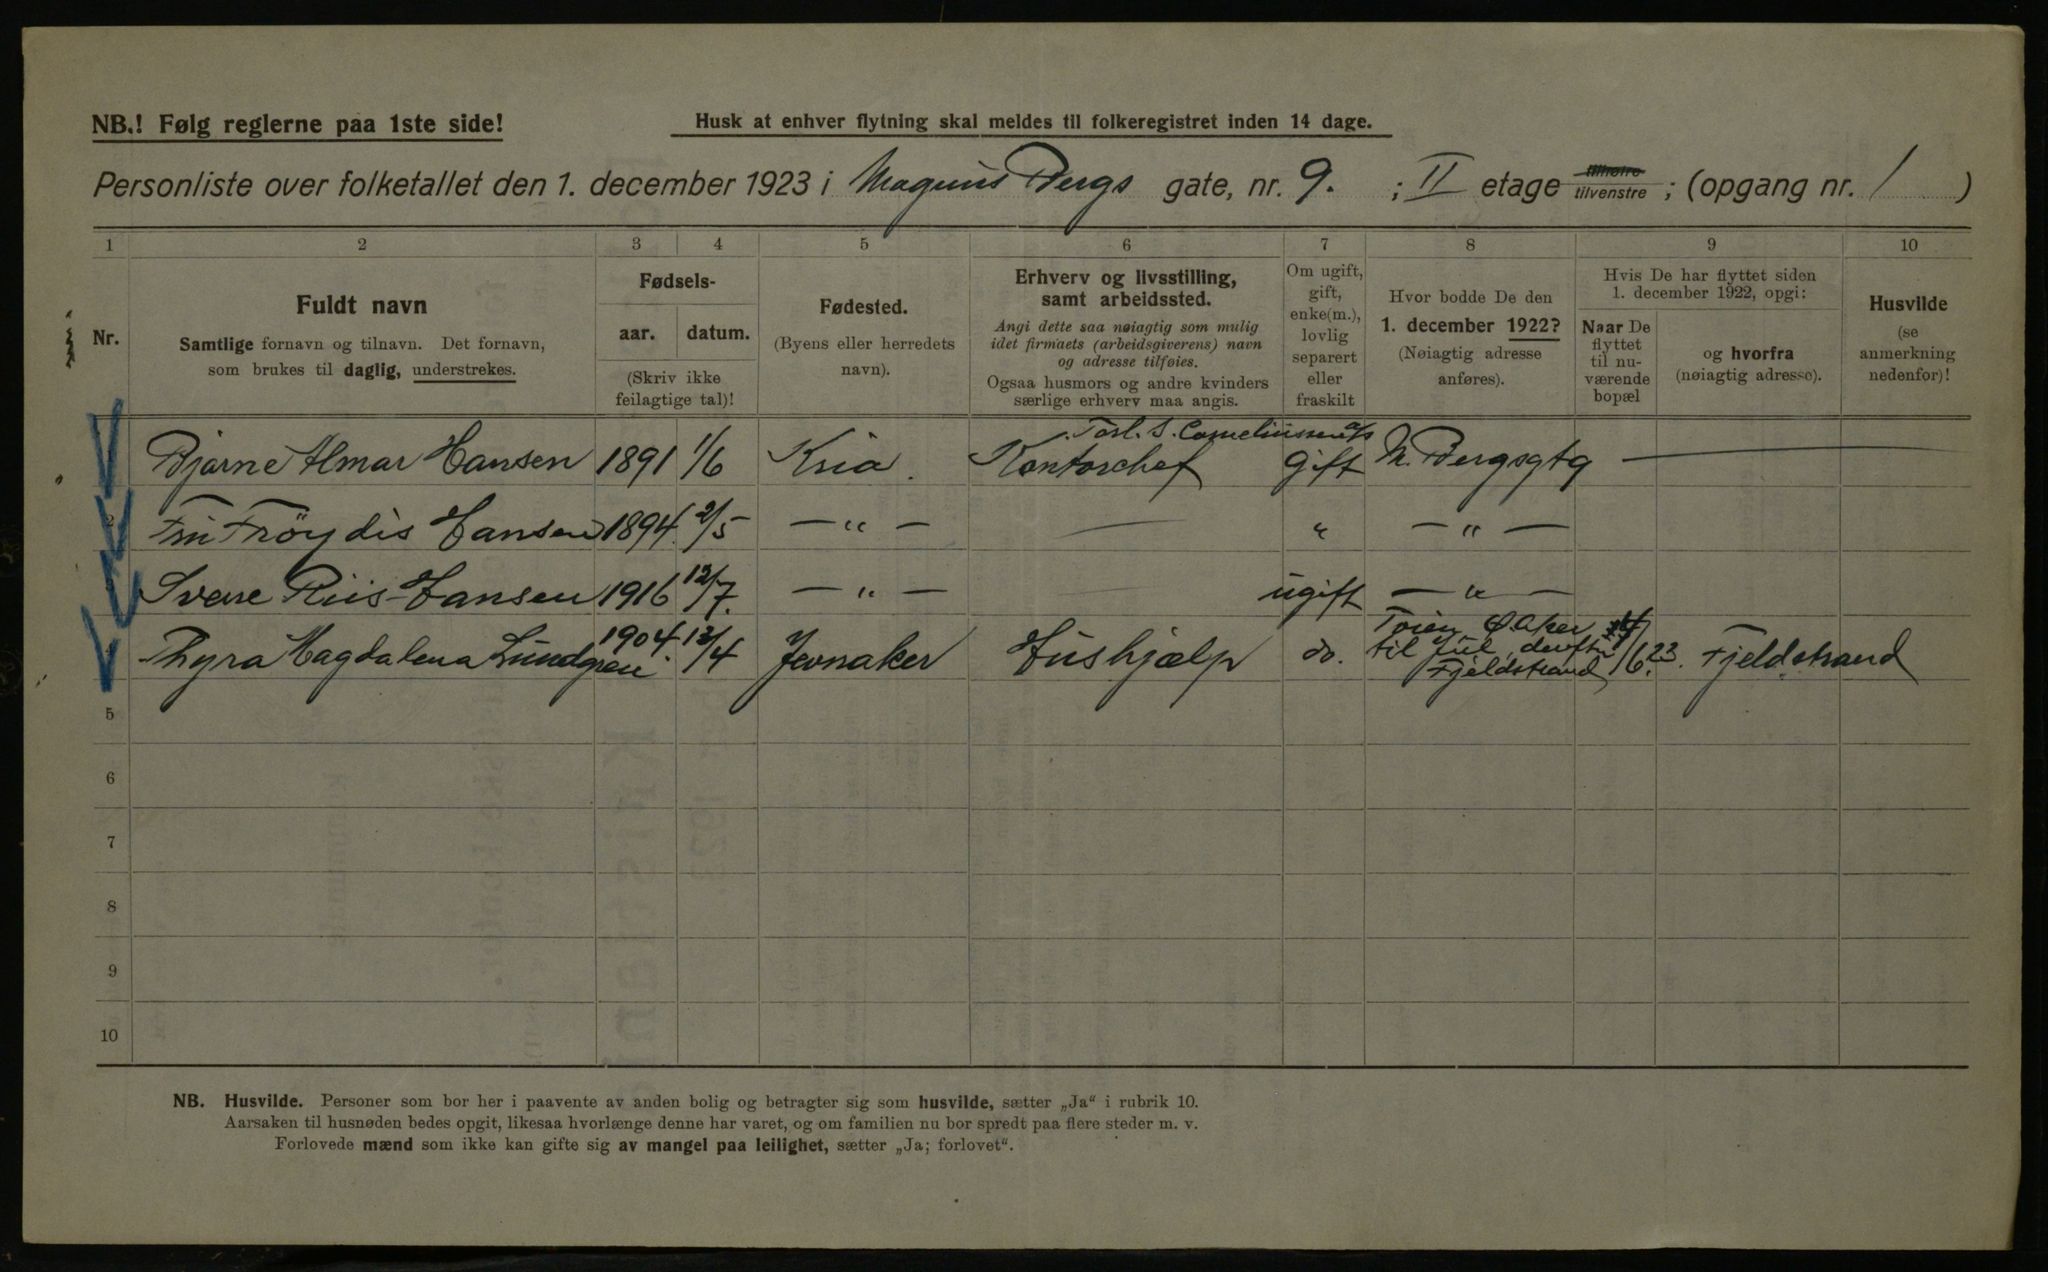 NB.! Følg reglerne paa 1ste side!
Husk at enhver flytning skal meldes til folkeregistret inden 14 dage.
Personliste over folketallet den 1. december 1923 i Magnus Bergs gate, nr. 9. ; II etage tilhøire tilvenstre ; (opgang nr. 1 )
1 2 3 4 5 6 7 8 9 10
Nr.
Fuldt navn
Samtlige fornavn og tilnavn. Det fornavn,
som brukes til daglig, understrekes.
Fødsels-
aar. datum.
(Skriv ikke
feilagtige tal)!
Fødested.
(Byens eller herredets
navn).
Erhverv og livsstilling,
samt arbeidssted.
Angi dette saa nøiagtig som mulig
idet firmaets (arbeidsgiverens) navn
og adresse tilføies.
Ogsaa husmors og andre kvinders
særlige erhverv maa angis.
Om ugift,
gift,
enke(m.),
lovlig
separert
eller
fraskilt
Hvor bodde De den
1. december 1922?
(Nøiagtig adresse
anføres).
Hvis De har flyttet siden
1. december 1922, opgi:
Naar De
flyttet
til nu-
værende
bopæl
og hvorfra
(nøiagtig adresse).
Husvilde
(se
anmerkning
nedenfor)!
S. Corneliussen a/s
Bjarne Almar Hansen 1891 1/6 Kria. Kontorchef gift M. Bergsgt 9 —
2 Fru Frøydis Hansen 1894. 2/5 — " — — " — " —
Sverre Riis-Hansen 1916 12/7. — " — ugift — " —
Thyra Magdalena Lundgren. 1904. 13/4 Jevnaker Hushjælp do. Tøien Ø. Aker
til Jul, derefter
Fjeldstrand /6 23. Fjeldstrand
5
6
7
8
9
10
NB. Husvilde. Personer som bor her i paavente av anden bolig og betragter sig som husvilde, sætter „Ja“ i rubrik 10.
Aarsaken til husnøden bedes opgit, likesaa hvorlænge denne har varet, og om familien nu bor spredt paa flere steder m. v.
Forlovede mænd som ikke kan gifte sig av mangel paa leilighet, sætter „Ja; forlovet“.